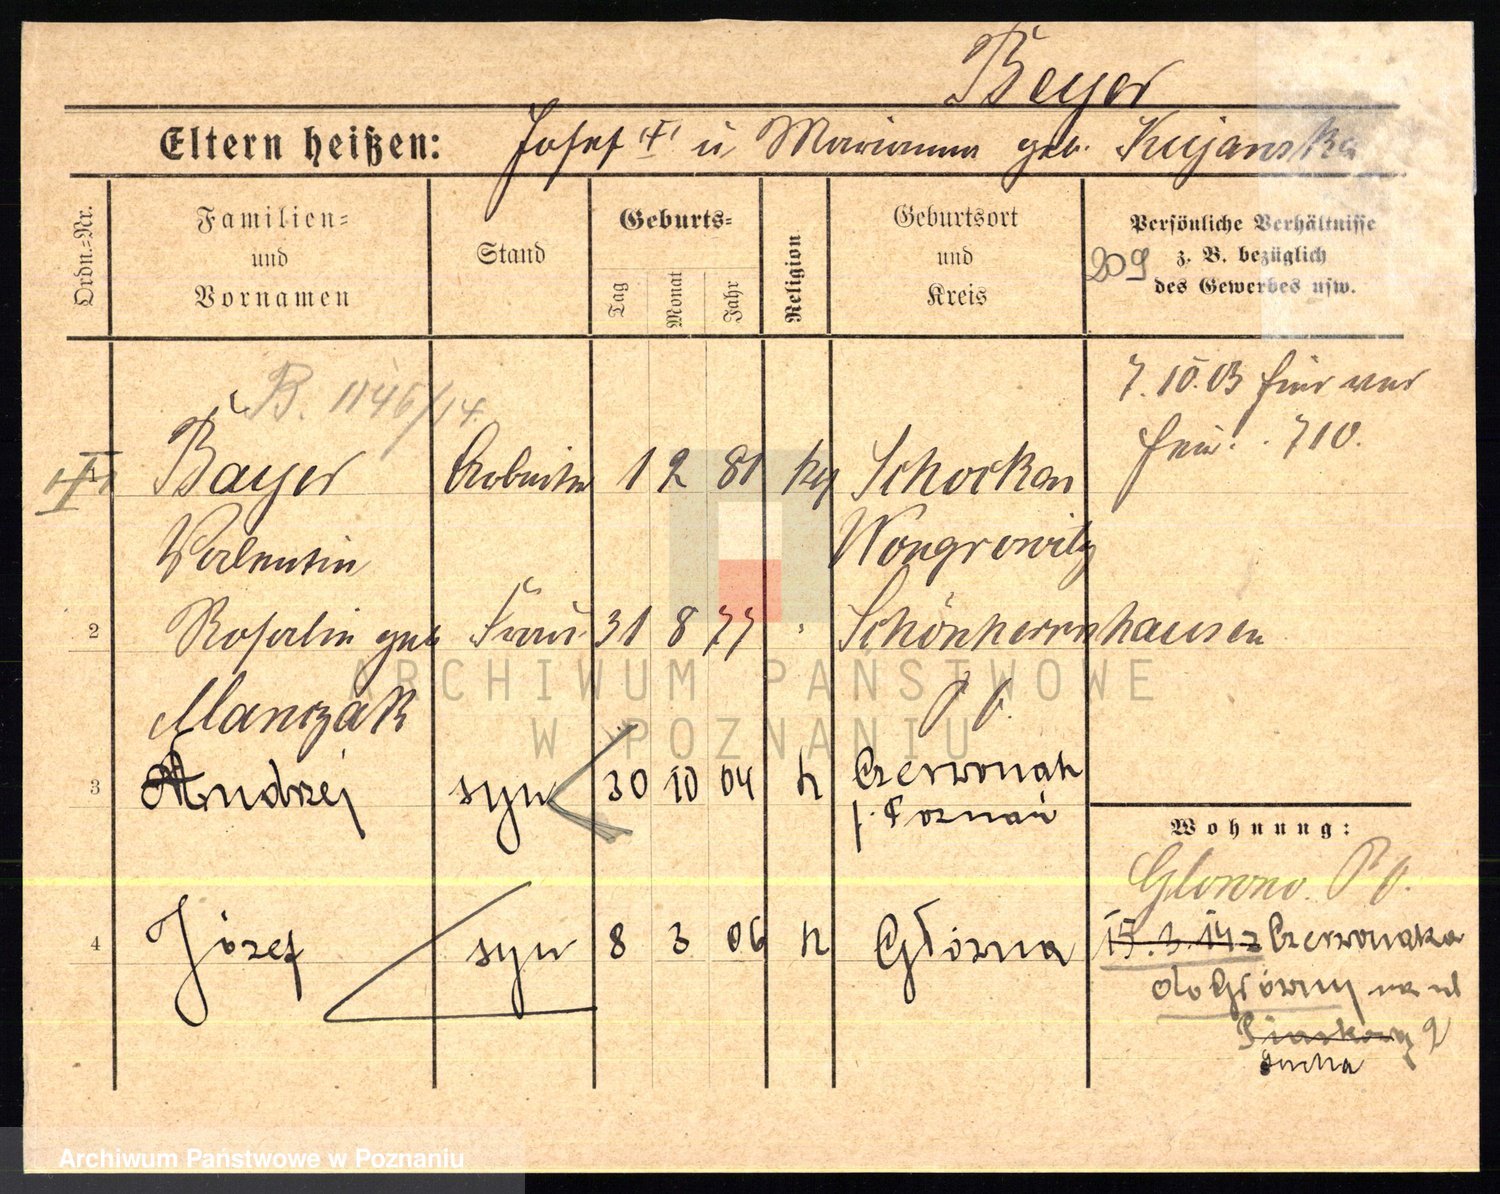 Beyer
Eltern heißen: Josef u Marianna geb. Kujanska
Ordn.-Nr.
Familien-
und
Vornamen
Stand
Geburts-
Tag Monat Jahr
Religion
Geburtsort
und
Kreis
Persönliche Verhältnisse
z. B. bezüglich
des Gewerbes usw.
209
B. 1146/14.
7.10.03 hier war
710.
1 Bayer Arbeiter 1 2 81 Schocken
Valentin Wongrowitz
2 Rosalie geb Frau 31 8 77 Schönherrnhausen
Manczak
3 Andrzej syn 30 10 04 k Czerwonak
p. Poznań
Wohnung:
Glowno P O.
4 Józef syn 8 3 06 k Główna
15.3.14 z Czerwonaka
do Główny na ul
Piaskowy 2
Sucha
ARCHIWUM PAŃSTWOWE
W POZNANIU
Archiwum Państwowe w Poznaniu